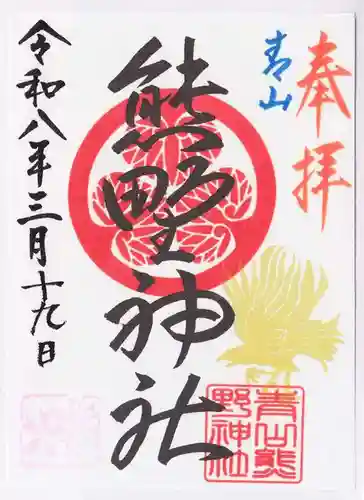 奉拝
青山
熊野神社
令和八年三月十九日
青山熊
野神社